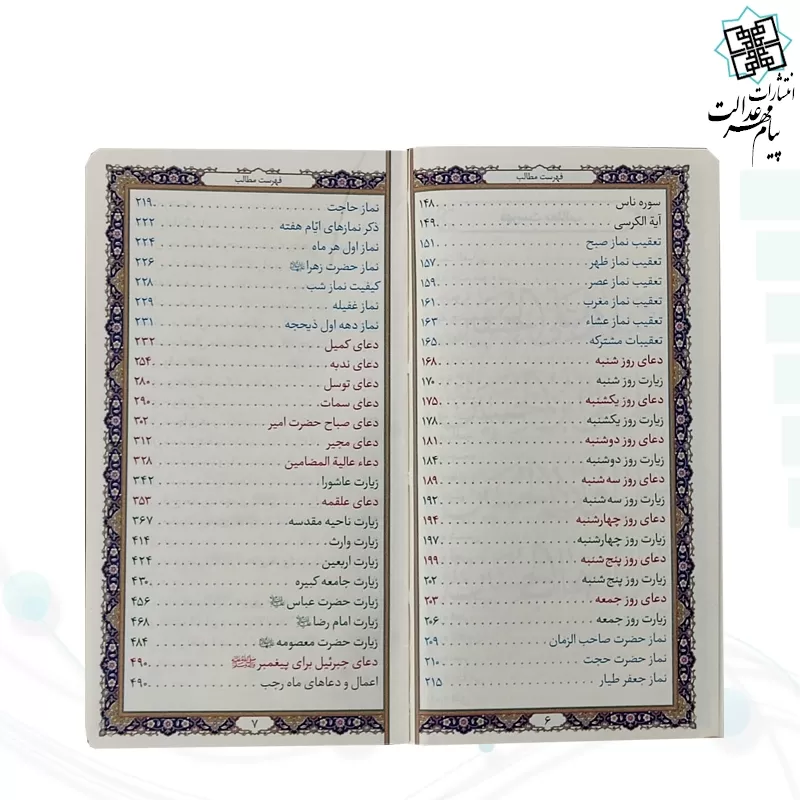 انتشارات
پیام مهر عدالت
فهرست مطالب
سوره ناس ۱۴۸
آیة الکرسی ۱۴۹
تعقیب نماز صبح ۱۵۱
تعقیب نماز ظهر ۱۵۷
تعقیب نماز عصر ۱۵۹
تعقیب نماز مغرب ۱۶۱
تعقیب نماز عشاء ۱۶۳
تعقیبات مشترکه ۱۶۵
دعای روز شنبه ۱۶۸
زیارت روز شنبه ۱۷۰
دعای روز یکشنبه ۱۷۵
زیارت روز یکشنبه ۱۷۸
دعای روز دوشنبه ۱۸۱
زیارت روز دوشنبه ۱۸۴
دعای روز سه شنبه ۱۸۹
زیارت روز سه شنبه ۱۹۲
دعای روز چهارشنبه ۱۹۴
زیارت روز چهارشنبه ۱۹۷
دعای روز پنج شنبه ۱۹۹
زیارت روز پنج شنبه ۲۰۲
دعای روز جمعه ۲۰۳
زیارت روز جمعه ۲۰۶
نماز حضرت صاحب الزمان ۲۰۹
نماز حضرت حجت ۲۱۰
نماز جعفر طیار ۲۱۵
۶
فهرست مطالب
نماز حاجت ۲۱۹
ذکر نمازهای ایّام هفته ۲۲۲
نماز اول هر ماه ۲۲۴
نماز حضرت زهرا ۲۲۶
کیفیت نماز شب ۲۲۸
نماز غفیله ۲۲۹
نماز دهه اول ذیحجه ۲۳۱
دعای کمیل ۲۳۲
دعای ندبه ۲۵۴
دعای توسل ۲۸۰
دعای سمات ۲۹۰
دعای صباح حضرت امیر ۳۰۲
دعای مجیر ۳۱۲
دعاء عالیة المضامین ۳۲۸
زیارت عاشورا ۳۴۲
دعای علقمه ۳۵۳
زیارت ناحیه مقدسه ۳۶۷
زیارت وارث ۴۱۴
زیارت اربعین ۴۲۴
زیارت جامعه کبیره ۴۳۰
زیارت حضرت عباس ۴۵۶
زیارت امام رضا ۴۶۸
زیارت حضرت معصومه ۴۸۴
دعای جبرئیل برای پیغمبر ۴۹۰
اعمال و دعاهای ماه رجب ۴۹۰
۷